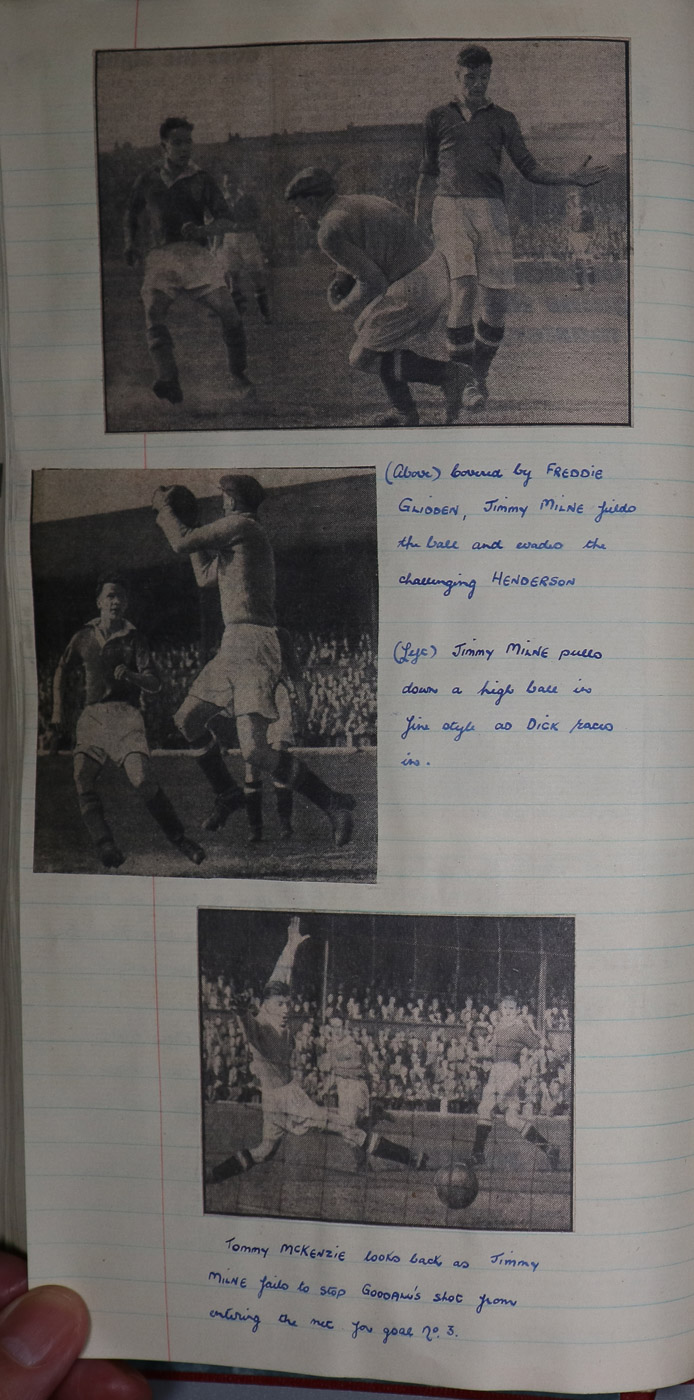 (Above) Covered by FREDDIE
GLIDDEN, Jimmy MILNE fields
the ball and evades the
challenging HENDERSON
(Left) Jimmy MILNE pulls
down a high ball in
fine style as DICK races
in.
Tommy McKENZIE looks back as Jimmy
MILNE fails to stop GOODALL'S shot from
entering the net for goal No. 3.